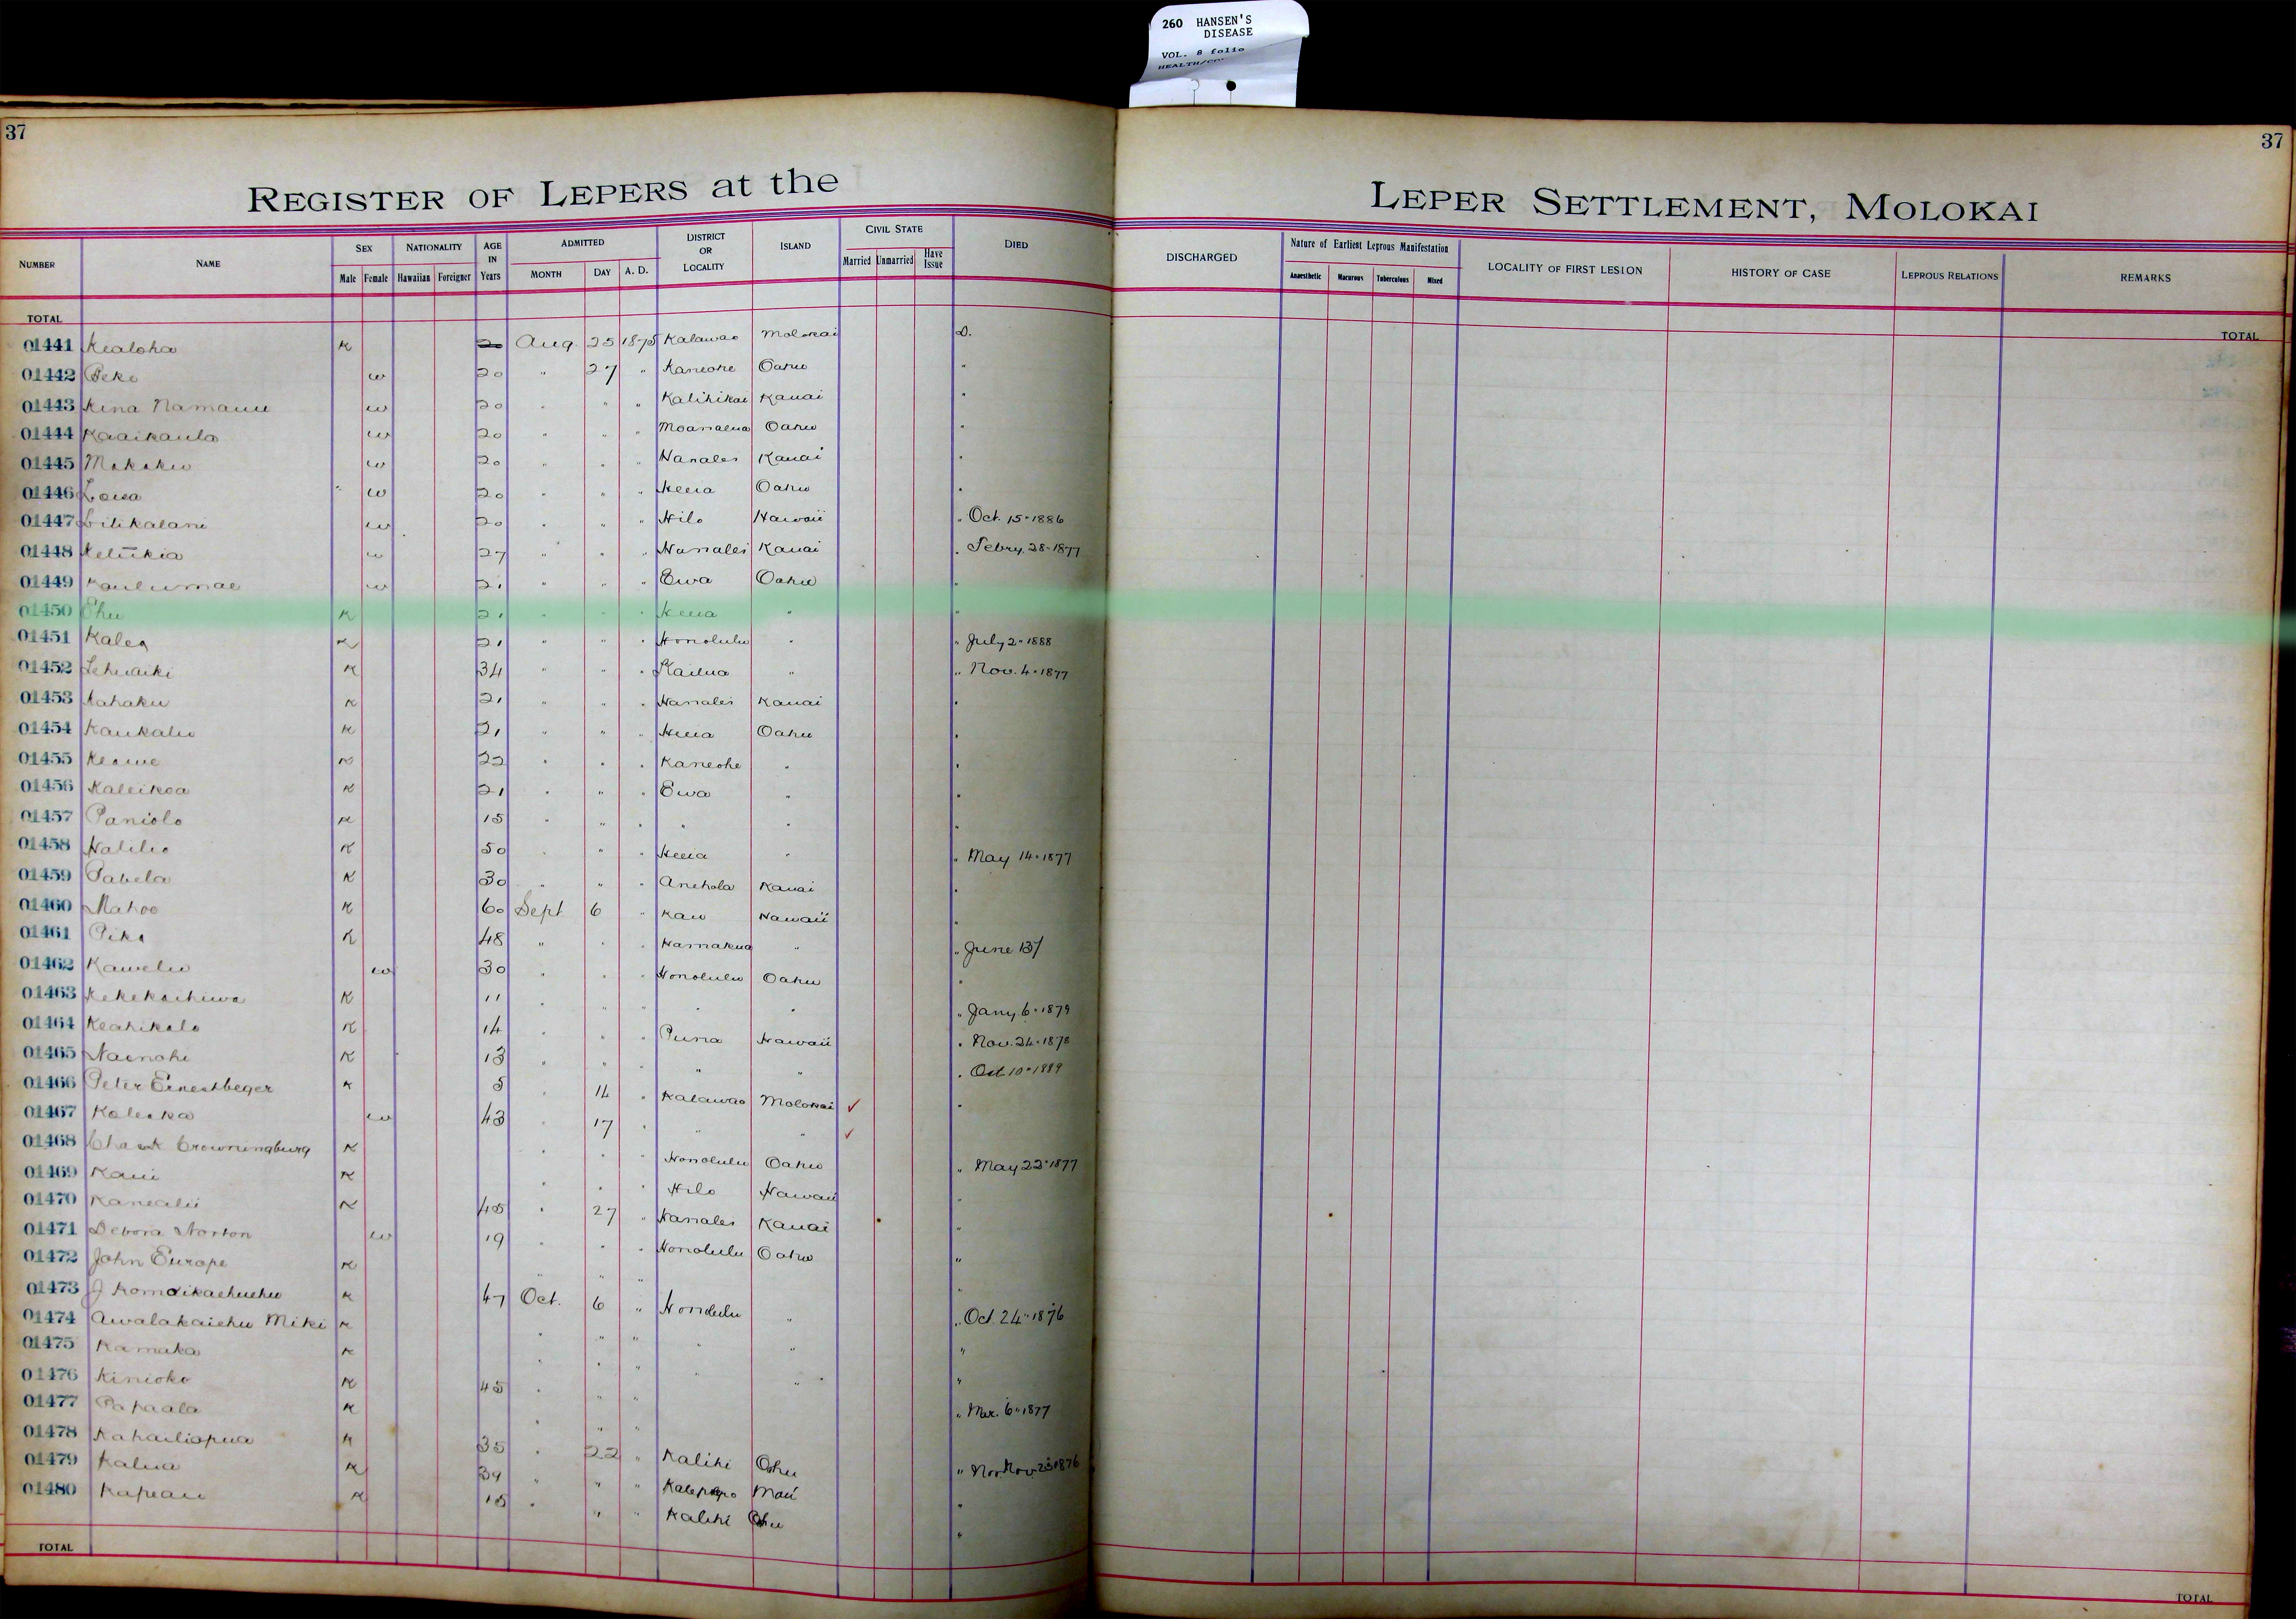 260 HANSEN'S
DISEASE
VOL. 8 folio
37
37
REGISTER OF LEPERS at the
LEPER SETTLEMENT, MOLOKAI
NUMBER NAME SEX Male Female NATIONALITY Hawaiian Foreigner AGE IN Years ADMITTED MONTH DAY A. D. DISTRICT OR LOCALITY ISLAND CIVIL STATE Married Unmarried Have Issue DIED
DISCHARGED Nature of Earliest Leprous Manifestation Anaesthetic Macurous Tuberculous Mixed LOCALITY OF FIRST LESION HISTORY OF CASE LEPROUS RELATIONS REMARKS
TOTAL
TOTAL
01441 Kealoha K 20 Aug. 25 1875 Kalawao Molokai D.
01442 Peke w 20 " 27 " Kaneohe Oahu "
01443 Kina Namauu w 20 " " " Kalihikai Kauai "
01444 Kaaikaula w 20 " " " Moanalua Oahu "
01445 Makaku w 20 " " " Hanalei Kauai "
01446 Loisa w 20 " " " Heeia Oahu "
01447 Lilikalani w 20 " " " Hilo Hawaii " Oct. 15-1886
01448 Keliikia w 27 " " " Hanalei Kauai " Febry. 28-1877
01449 Kaulumae w 21 " " " Ewa Oahu "
01450 Ehu K 21 " " " Heeia " "
01451 Kalea K 21 " " " Honolulu " " July 2-1888
01452 Lehuaiki K 34 " " " Kailua " " Nov. 4-1877
01453 Kahaku K 21 " " " Hanalei Kauai "
01454 Kaukaliu K 21 " " " Heeia Oahu "
01455 Keawe K 22 " " " Kaneohe " "
01456 Kaleikoa K 21 " " " Ewa " "
01457 Paniolo K 15 " " " " " "
01458 Halilio K 50 " " " Heeia " " May 14-1877
01459 Pabela K 30 " " " Anehola Kauai "
01460 Mahoe K 60 Sept 6 " Kau Hawaii "
01461 Pika K 48 " " " Hamakua " " June 137
01462 Kawelu w 30 " " " Honolulu Oahu "
01463 Kekekachiwa K 11 " " " " " " Jany. 6-1879
01464 Keahikalo K 14 " " " Puna Hawaii " Nov. 24-1878
01465 Nainohi K 13 " " " " " " Oct 10-1889
01466 Peter Ernestbeger K 5 " 14 " Kalawao Molokai ✓ "
01467 Kaleika w 43 " 17 " " " ✓
01468 Crowningburg K " " " Honolulu Oahu " May 22-1877
01469 Kaui K " " " Hilo Hawaii "
01470 Kanealii K 45 " 27 " Hanalei Kauai "
01471 Debora Norton w 19 " " " Honolulu Oahu "
01472 John Europe K " " " "
01473 J Komoikaehuehu K 47 Oct. 6 " Honolulu " " Oct. 24-1876
01474 Awalakaiehu Miki K " " " " " "
01475 Kamaka K " " " " " "
01476 Kinioko K 45 " " " " Mar. 6-1877
01477 Papaala K " " "
01478 Kahailiopua K 35 " 22 " Kalihi Oahu " Nov. 25-1876
01479 Kalua K 39 " " " Kalepapo Maui "
01480 Kapeau K 15 " " " Kalihi Oahu "
TOTAL
TOTAL